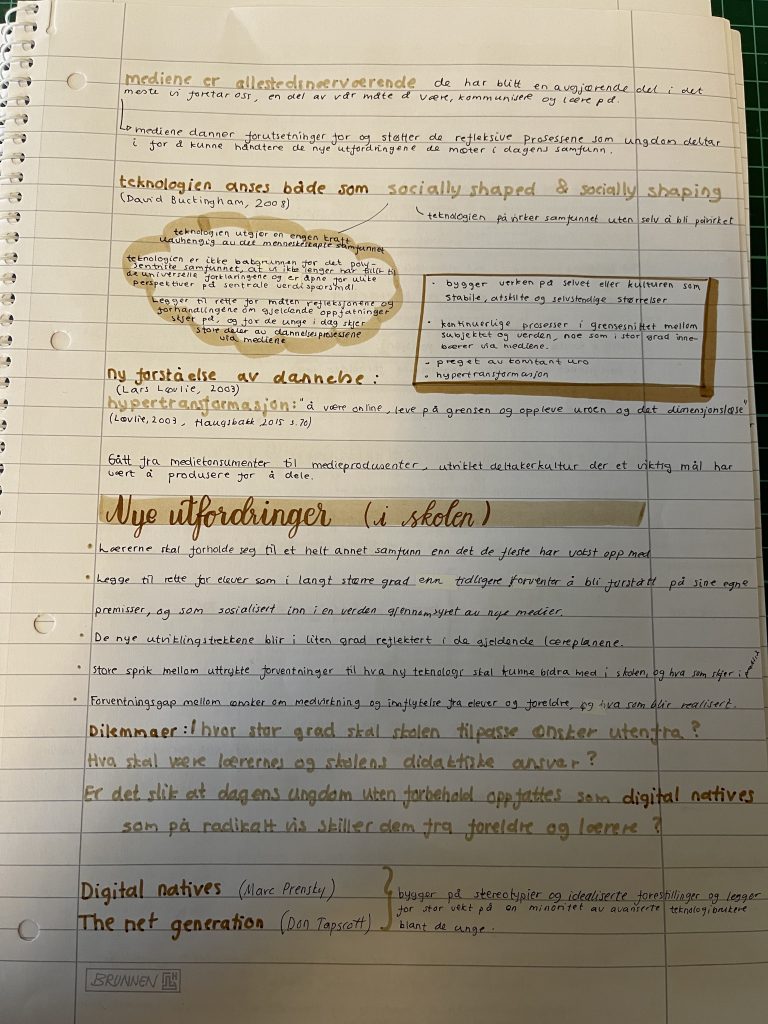 mediene er allestedsnærværende de har blitt en avgjørende del i det
meste vi foretar oss, en del av vår måte å være, kommunisere og lære på.
mediene danner forutsetninger for og støtter de refleksive prosessene som ungdom deltar
i for å kunne håndtere de nye utfordringene de møter i dagens samfunn.
teknologien anses både som socially shaped & socially shaping
(David Buckingham, 2008)
teknologien påvirker samfunnet uten selv å bli påvirket
teknologien utgjør en engen kraft
uavhengig av det menneskeskapte samfunnet
teknologien er ikke bakgrunnen for det poly-
sentriske samfunnet, at vi ikke lenger har tillit til
de universelle forklaringene og er åpne for ulike
perspektiver på sentrale verdispørsmål
Legger til rette for måten refleksjonene og
forhandlingene om gjeldende oppfatninger
skjer på, og for de unge i dag skjer
store deler av dannelsesprosessene
via mediene
• bygger verken på selvet eller kulturen som
stabile, atskilte og selvstendige størrelser
• kontinuerlige prosesser i grensesnittet mellom
subjektet og verden, noe som i stor grad inne-
bærer via mediene.
• preget av konstant uro
• hypertransformasjon
ny forståelse av dannelse:
(Lars Løvlie, 2003)
hypertransformasjon: "å være online, leve på grensen og oppleve uroen og det dimensjonsløse"
(Løvlie, 2003, Haugsbakk, 2015 s.70)
Gått fra mediekonsumenter til medieprodusenter, utviklet deltakerkultur der et viktig mål har
vært å produsere for å dele.
Nye utfordringer (i skolen)
• Lærerne skal forholde seg til et helt annet samfunn enn det de fleste har vokst opp med
• Legge til rette for elever som i langt større grad enn tidligere forventer å bli forstått på sine egne
premisser, og som sosialisert inn i en verden gjennomsyret av nye medier.
• De nye utviklingstrekkene blir i liten grad reflektert i de gjeldende læreplanene.
• Store sprik mellom uttrykte forventninger til hva ny teknologi skal kunne bidra med i skolen, og hva som skjer i
• Forventningsgap mellom ønsker om medvirkning og innflytelse fra elever og foreldre, og hva som blir realisert.
Dilemmaer: I hvor stor grad skal skolen tilpasse ønsker utenfra?
Hva skal være lærernes og skolens didaktiske ansvar?
Er det slik at dagens ungdom uten forbehold oppfattes som digital natives
som på radikalt vis skiller dem fra foreldre og lærere?
Digital natives (Marc Prensky)
The net generation (Don Tapscott)
bygger på stereotypier og idealiserte forestillinger og legger
for stor vekt på en minoritet av avanserte teknologibrukere
blant de unge.
BRUNNEN